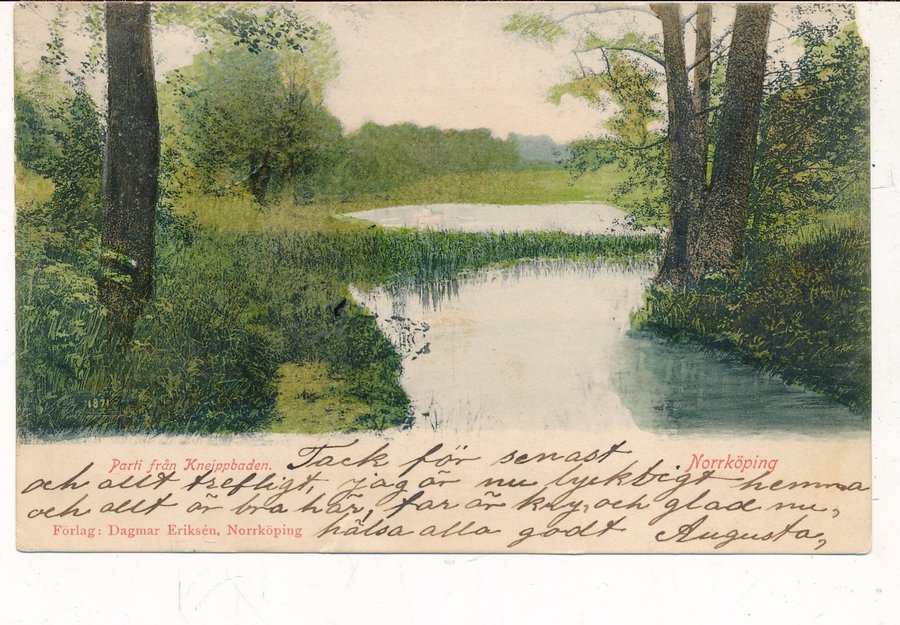 1871
Parti från Kneippbaden.
Norrköping
Tack för senast
och allt trefligt, jag är nu lyckligt hemma
och allt är bra här, far är kry, och glad nu,
Förlag: Dagmar Eriksén, Norrköping
hälsa alla godt Augusta,